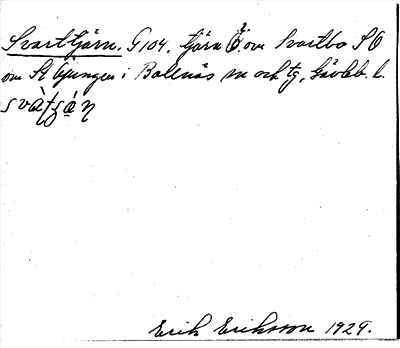 Svarttjärn. G104. tjärn Ö om Svartbo SO
om St Öjungen i Bollnäs sn och tg, Gävleb. l.
svàtʒά̣η
Erik Eriksson 1929.